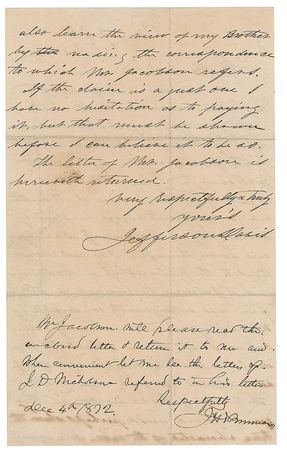 also learn the view of my Brother
by the reading the correspondence
to which Mr. Jacobson refers.
If the claim is a just one I
have no hesitation as to paying
it, but that must be shown
before I can believe it to be so.
The letter of Mr. Jacobson is
herewith returned.
Very respectfully & truly
yours
Jefferson Davis
Mr Jacobson will please read the
inclosed letter & return it to me and
when convenient let me see the letter of
J D Nicholson referred to in his letter
Respectfully
Dec 4th 1872.